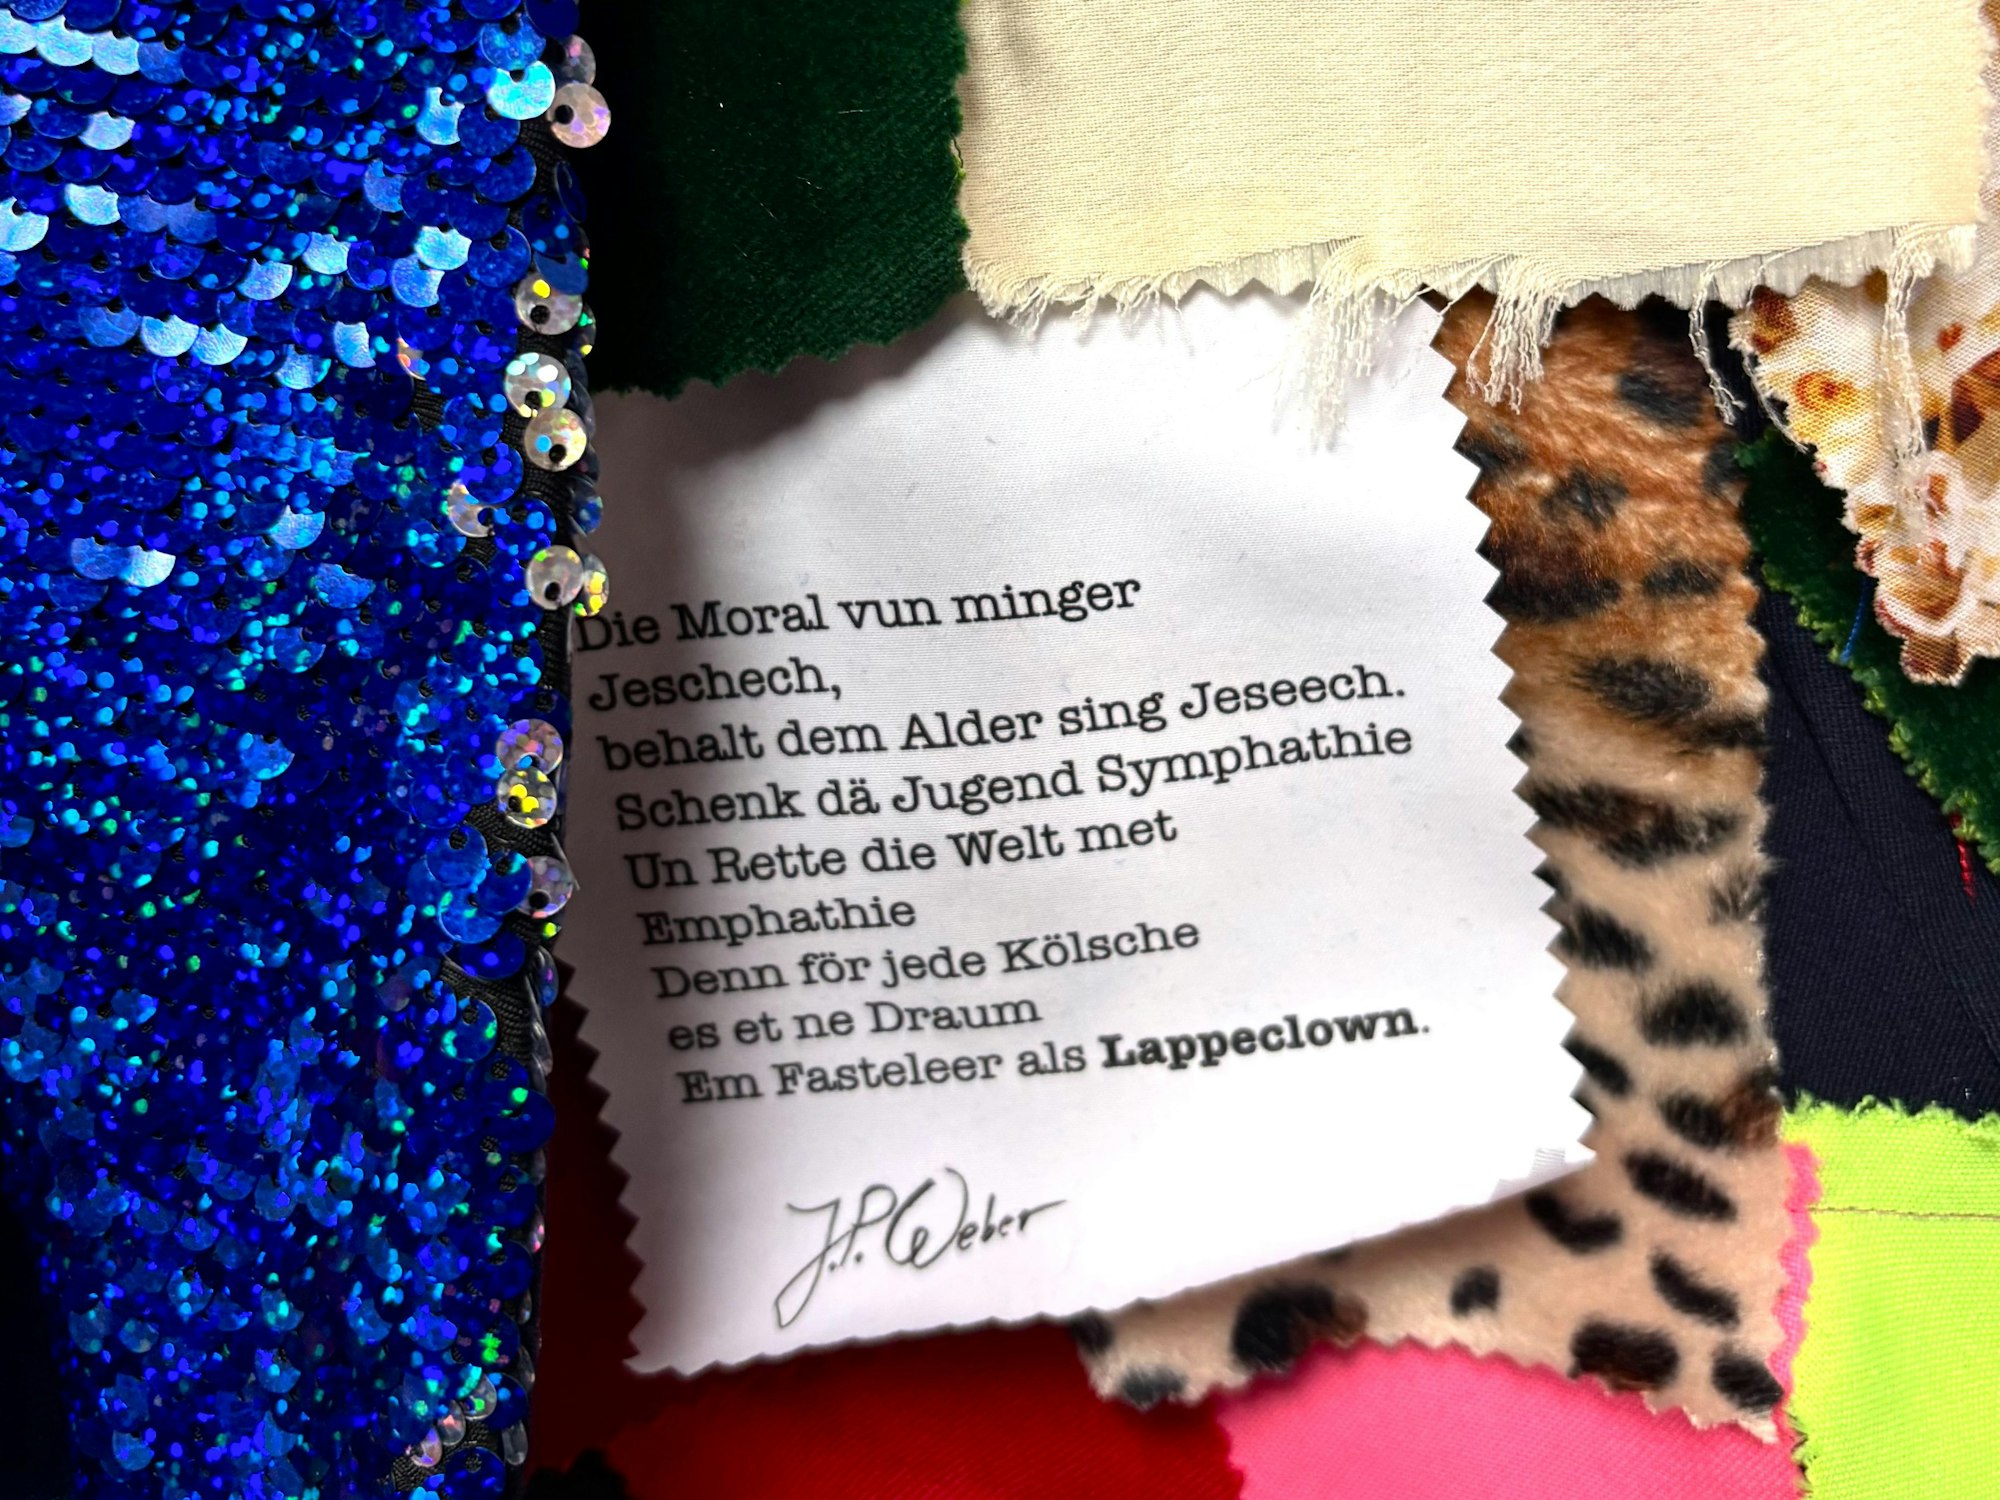 Die Moral vun minger
Jeschech,
behalt dem Alder sing Jeseech.
Schenk dä Jugend Symphathie
Un Rette die Welt met
Emphathie
Denn för jede Kölsche
es et ne Draum
Em Fasteleer als Lappeclown.
J.P. Weber